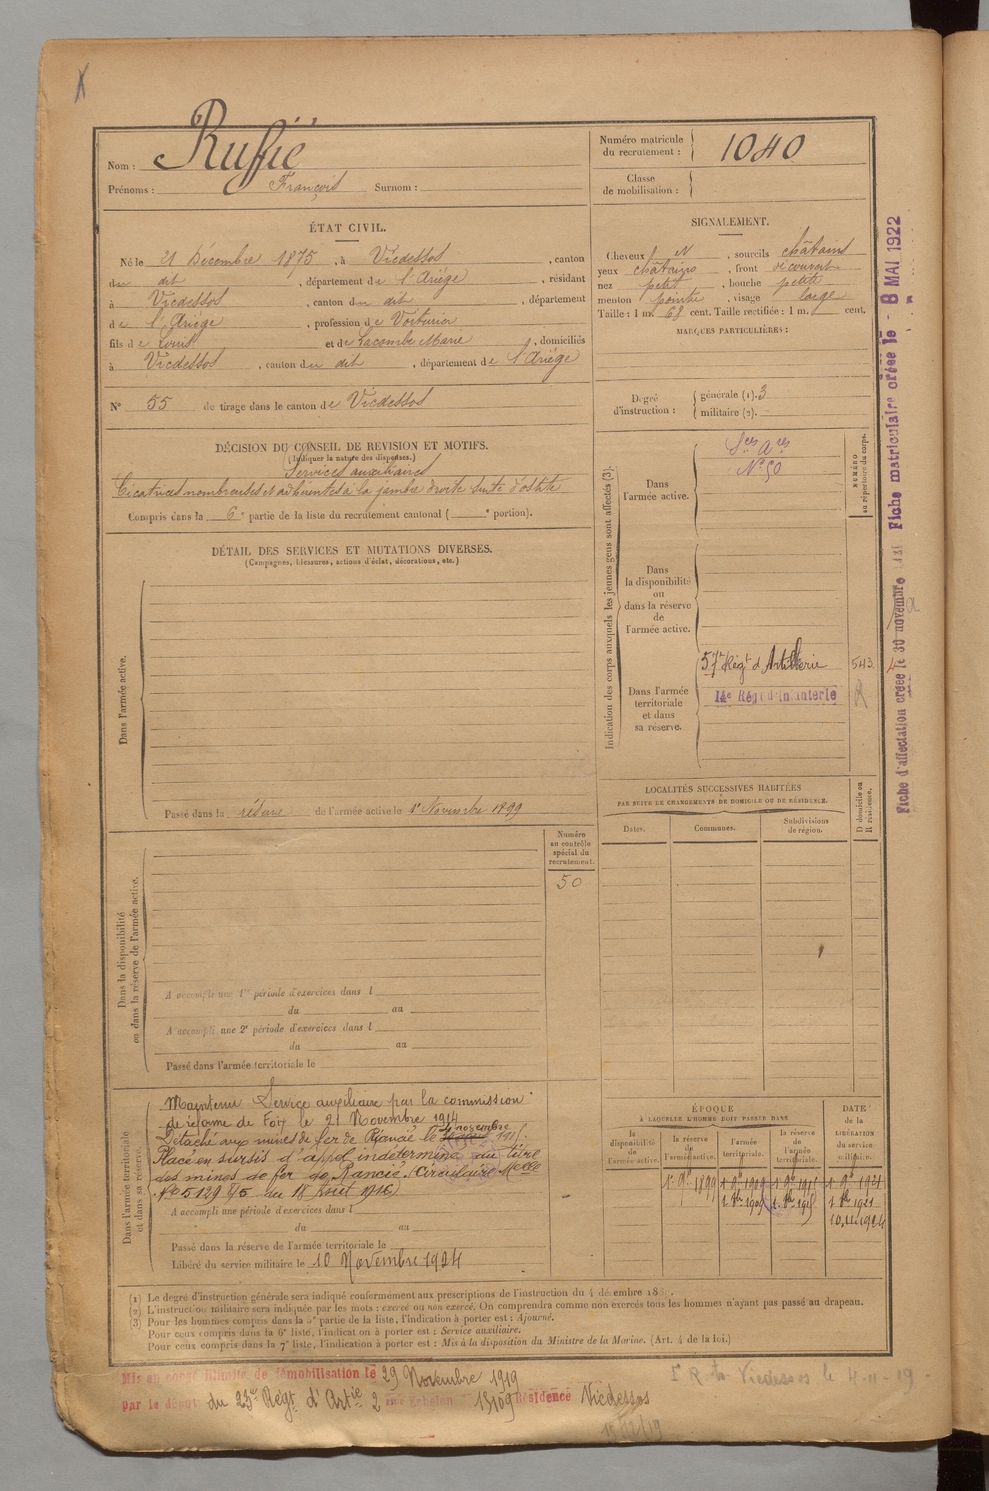 Ruffié
Nom :
Prénoms : François Surnom :
Numéro matricule
du recrutement : 1040
Classe
de mobilisation :
ÉTAT CIVIL.
Né le 21 Décembre 1875, à Vicdessos, canton
du dit, département de l'Ariège, résidant
à Vicdessos, canton du dit, département
de l'Ariège, profession de Voiturier
fils de Louis et de Lacombe Marie, domiciliés
à Vicdessos, canton du dit, département de l'Ariège
N° 55 de tirage dans le canton de Vicdessos
SIGNALEMENT.
Cheveux et, sourcils châtains
yeux châtains, front découvert
nez petit, bouche petite
menton pointu, visage large
Taille : 1 m. 68 cent. Taille rectifiée : 1 m. cent.
MARQUES PARTICULIÈRES :
Degré
d'instruction :
générale (1). 3
militaire (2).
DÉCISION DU CONSEIL DE REVISION ET MOTIFS.
(Indiquer la nature des dispenses.)
Services auxiliaires
Cicatrices nombreuses et adhérentes à la jambe droite suite d'ostéite
Compris dans la 6e partie de la liste du recrutement cantonal ( e portion).
DÉTAIL DES SERVICES ET MUTATIONS DIVERSES.
(Campagnes, blessures, actions d'éclat, décorations, etc.)
Dans l'armée active.
Passé dans la réserve de l'armée active le 1er Novembre 1899
Indication des corps auxquels les jeunes gens sont affectés (3).
Dans
l'armée active.
Sces Ares
N° 50
NUMÉRO
au répertoire du corps.
Dans
la disponibilité
ou
dans la réserve
de
l'armée active.
Dans l'armée
territoriale
et dans
sa réserve.
57e Régt d'Artillerie 543
14e Rég d'Infanterie
R
Fiche d'affectation créée le 30 novembre
Fiche matriculaire créée le - 8 MAI 1922
LOCALITÉS SUCCESSIVES HABITÉES
PAR SUITE DE CHANGEMENTS DE DOMICILE OU DE RÉSIDENCE.
Dates.
Communes.
Subdivisions
de région.
D domicile ou
R résidence.
Dans la disponibilité
ou dans la réserve de l'armée active.
Numéro
au contrôle
spécial du
recrutement.
50
A accompli une 1re période d'exercices dans l
du au
A accompli une 2e période d'exercices dans l
du au
Passé dans l'armée territoriale le
Dans l'armée territoriale
et dans sa réserve.
Maintenu Service auxiliaire par la commission
de réforme de Foix le 21 Novembre 1914
Détaché aux mines de fer de Rancié le novembre 1915.
Placé en sursis d'appel indéterminé au titre
des mines de fer de Rancié. (Circulaire Melle
N° 5129 5/5 du 18 Août 1916)
A accompli une période d'exercices dans l
du au
Passé dans la réserve de l'armée territoriale le
Libéré du service militaire le 10 Novembre 1924
ÉPOQUE
À LAQUELLE L'HOMME DOIT PASSER DANS
la
disponibilité
de
l'armée active.
la réserve
de
l'armée active.
l'armée
territoriale.
la réserve
de
l'armée
territoriale.
DATE
de la
LIBÉRATION
du service
militaire.
1. 9e 1899
1. 9e 1909
1. 9e 1915
1 9e 1921
1. 8e 1909
1. 8e 1915
1 8e 1921
10.11.1924
(1) Le degré d'instruction générale sera indiqué conformément aux prescriptions de l'instruction du 4 décembre
(2) L'instruction militaire sera indiquée par les mots : exercé ou non exercé. On comprendra comme non exercés tous les hommes n'ayant pas passé au drapeau.
(3) Pour les hommes compris dans la 5e partie de la liste, l'indication à porter est : Ajourné.
Pour ceux compris dans la 6e liste, l'indication à porter est : Service auxiliaire.
Pour ceux compris dans la 7e liste, l'indication à porter est : Mis à la disposition du Ministre de la Marine. (Art. 4 de la loi.)
Mis en congé illimité de démobilisation le 29 Novembre 1919
par le dépôt du 23e Régt d'Artie 2 ème Echelon 15109 Résidence Vicdessos
Vicdessos le 4-11-19